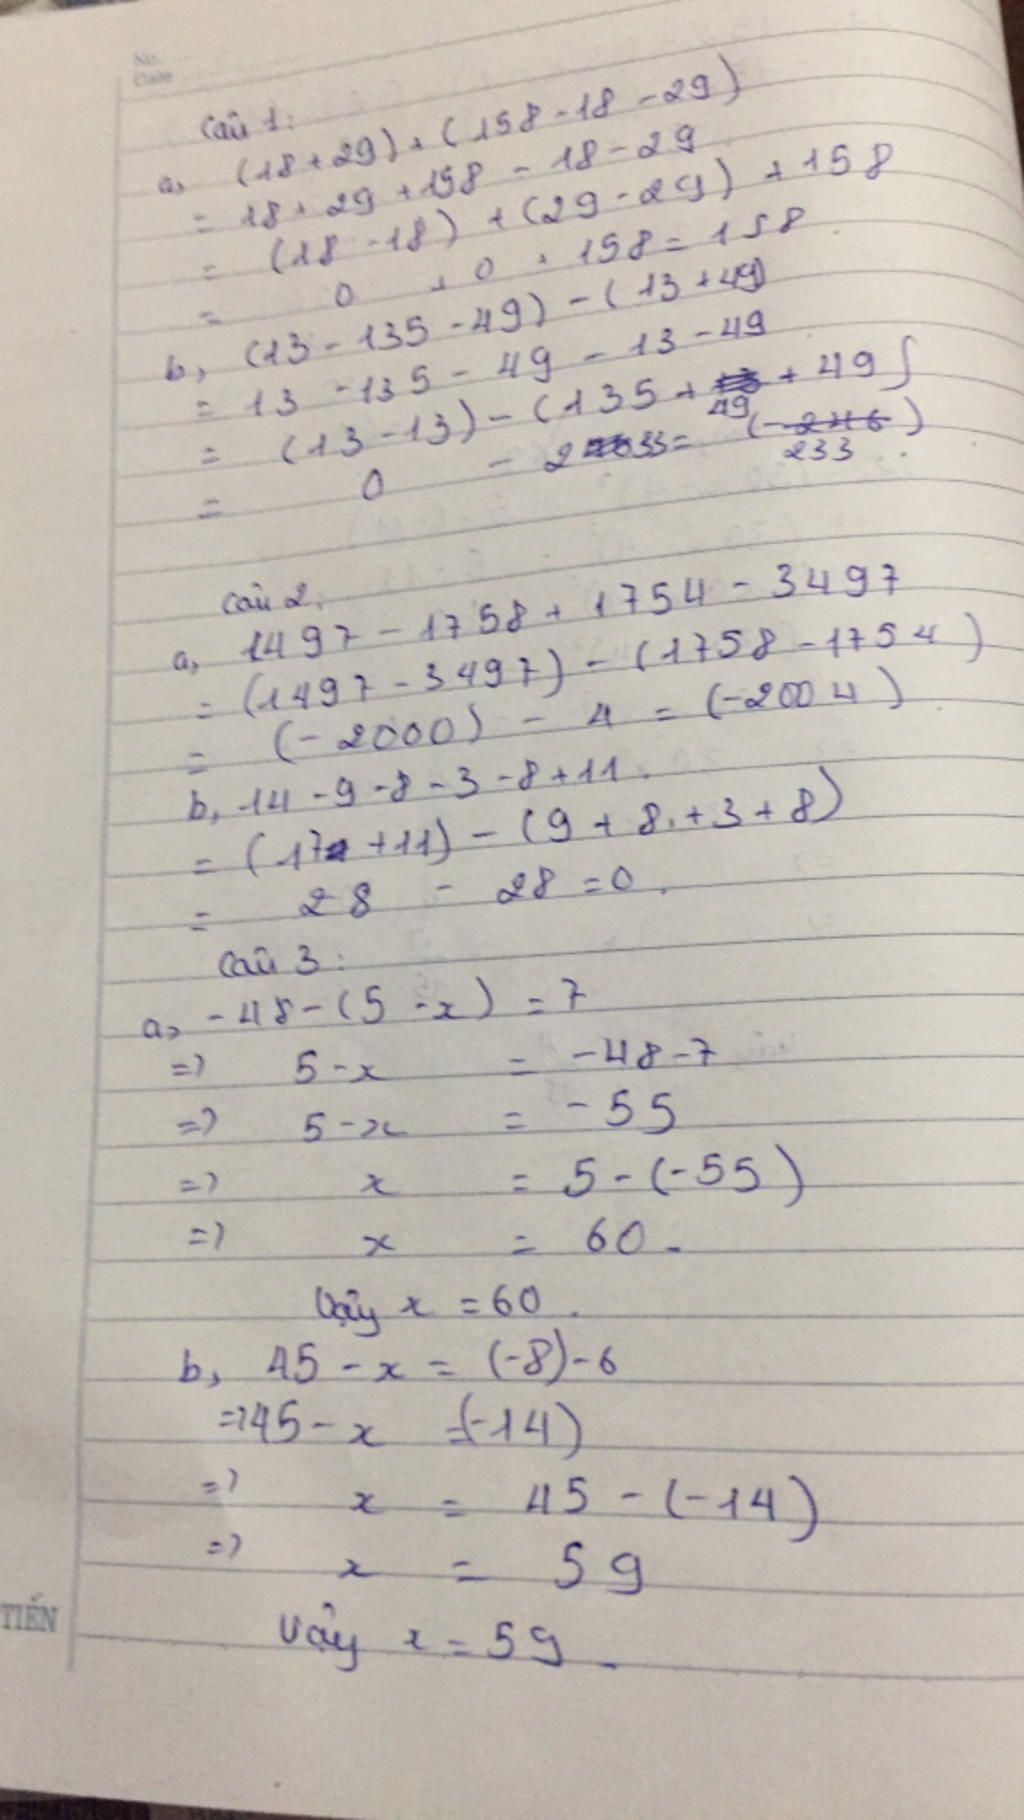 No.
Date
Câu 1:
a, (18+29)+(158-18-29)
= 18+29+158-18-29
= (18-18)+(29-29)+158
= 0 + 0 + 158=158
b, (13-135-49)-(13+49)
= 13-135-49-13-49
= (13-13)-(135+49+49)
= 0 - 233=(-233).
Câu 2:
a, 1497-1758+1754-3497
= (1497-3497)-(1758-1754)
= (-2000) - 4 = (-2004)
b, 14-9-8-3-8+11.
= (17+11)-(9+8+3+8)
= 28 - 28=0.
Câu 3:
a, -48-(5-x) =7
=> 5-x = -48-7
=> 5-x = -55
=> x = 5-(-55)
=> x = 60.
Vậy x=60.
b, 45-x=(-8)-6
=>45-x =(-14)
=> x = 45-(-14)
=> x = 59
Vậy x=59.
TIẾN